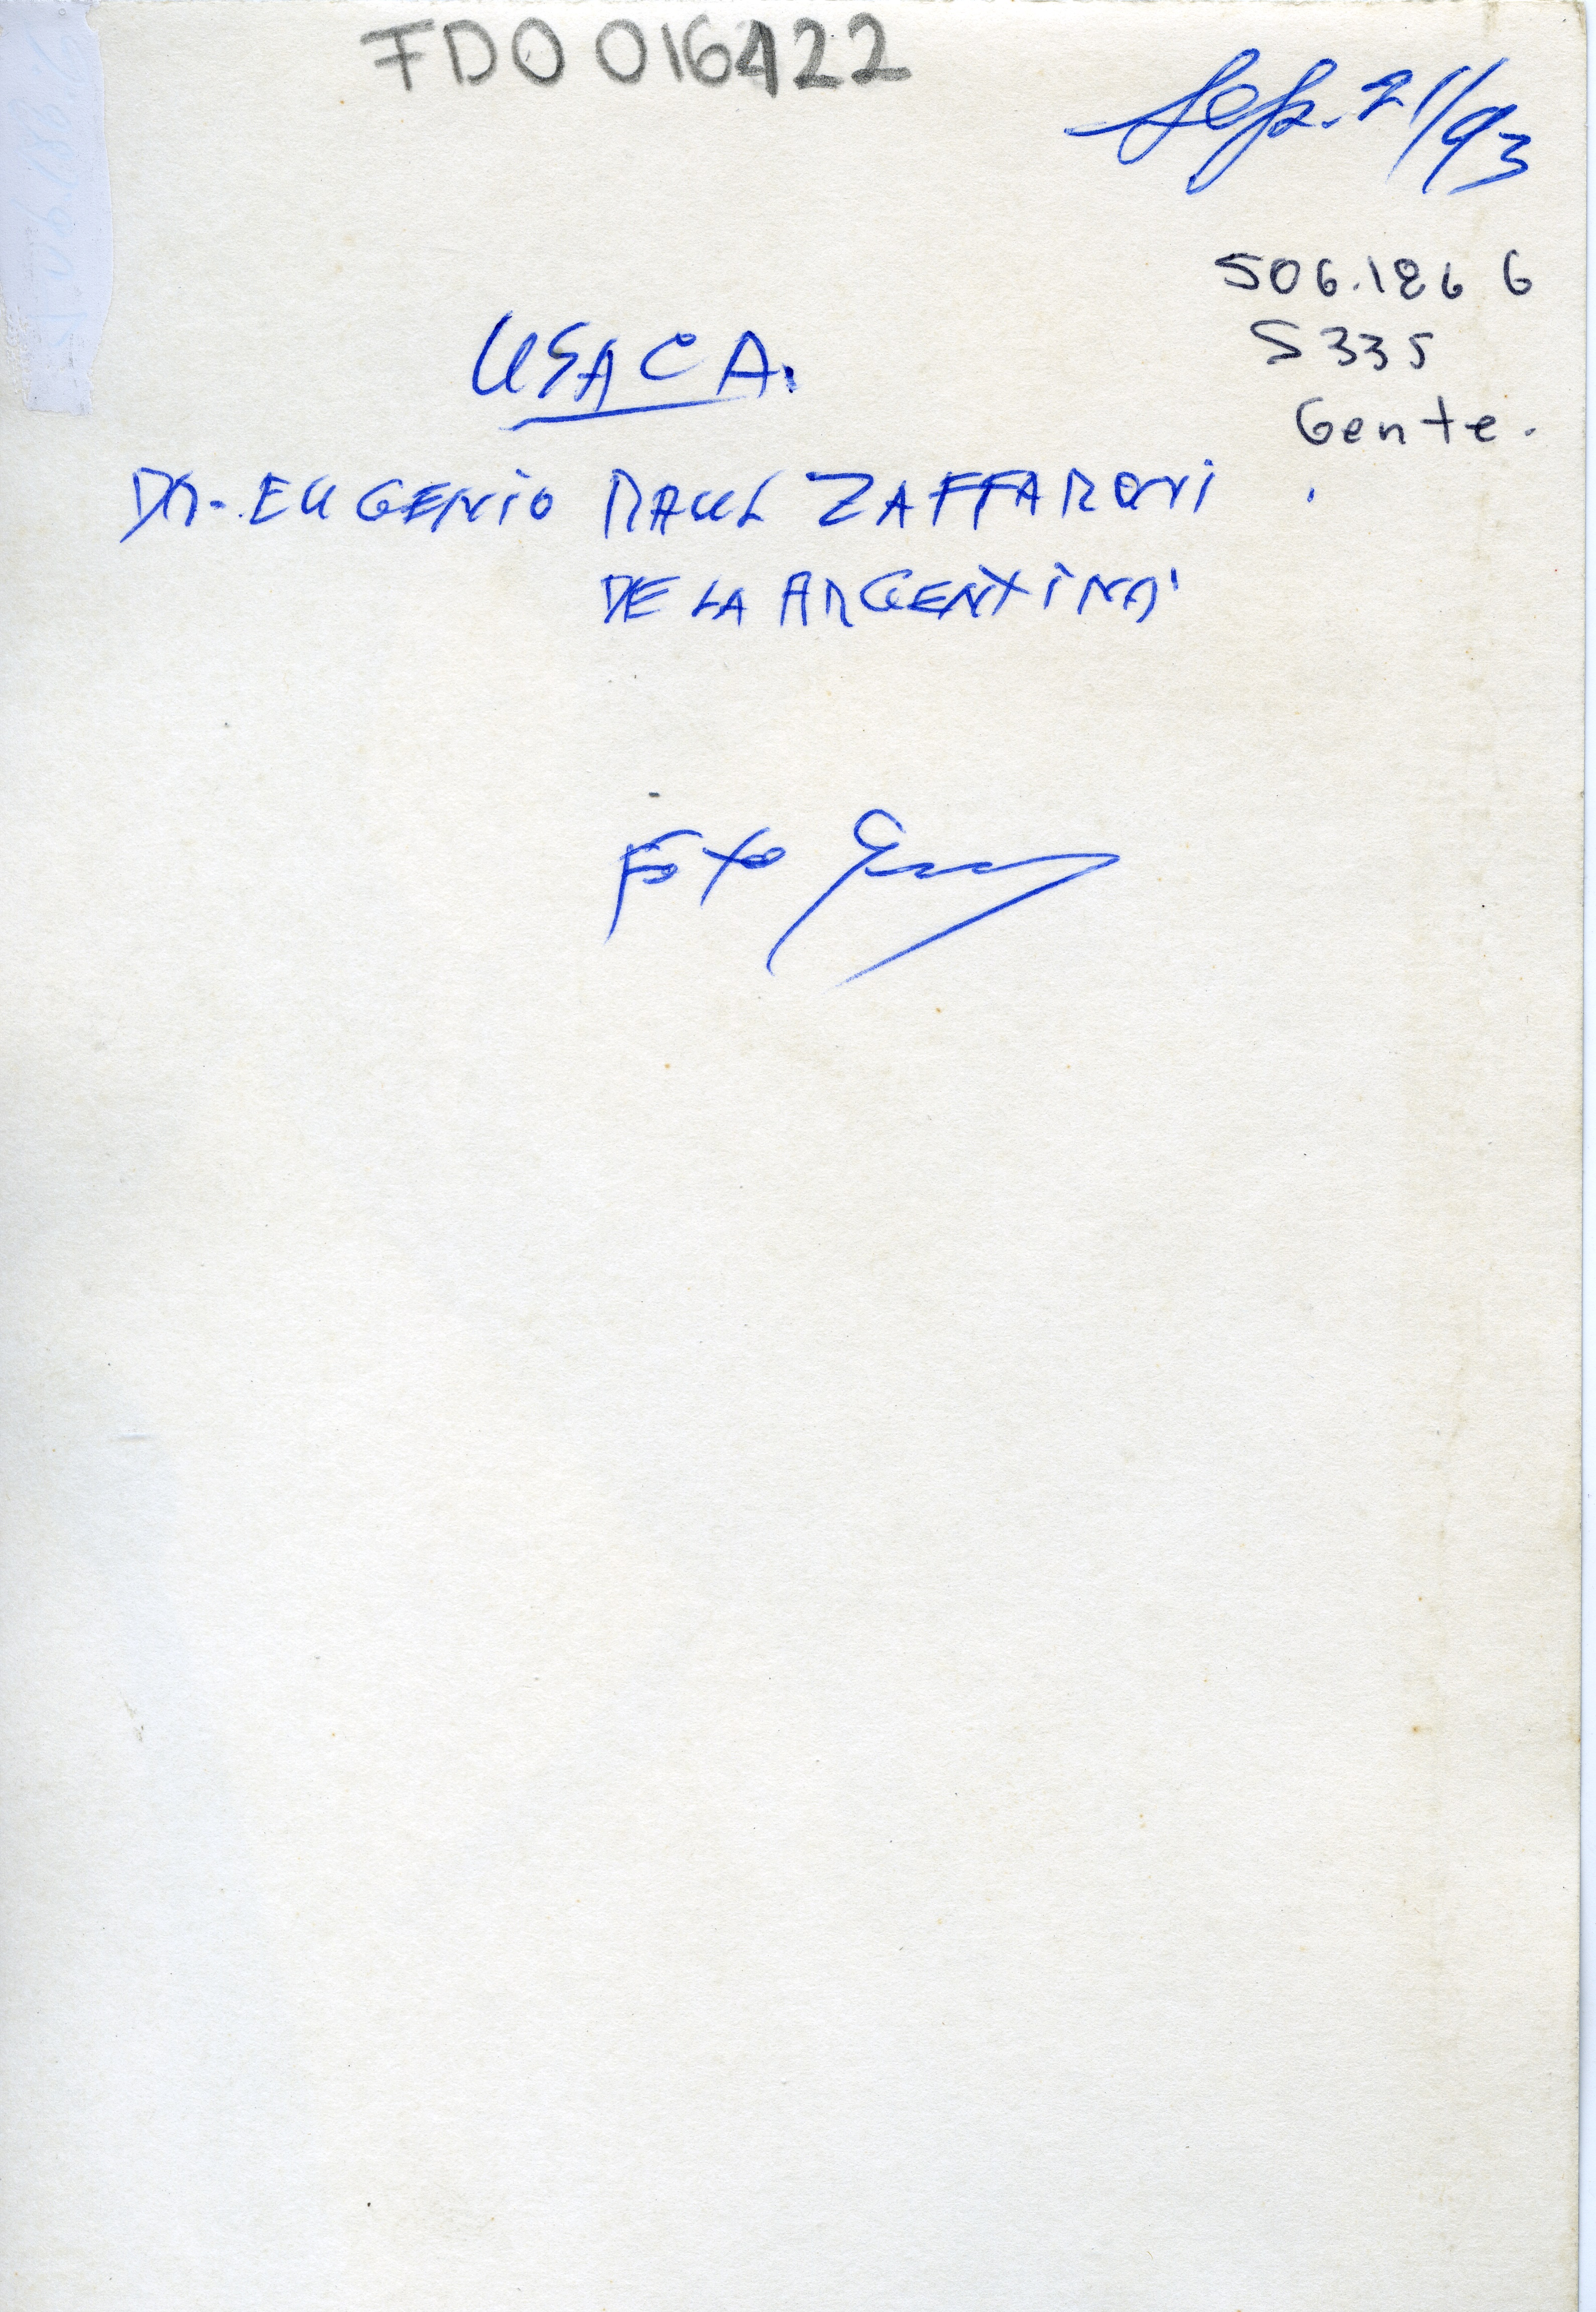 FDO 016422
Sep. 21/93
506.186 6
S335
Gente.
USACA.
DR. EUGENIO RAUL ZAFFARONI
DE LA ARGENTINA
FOTO